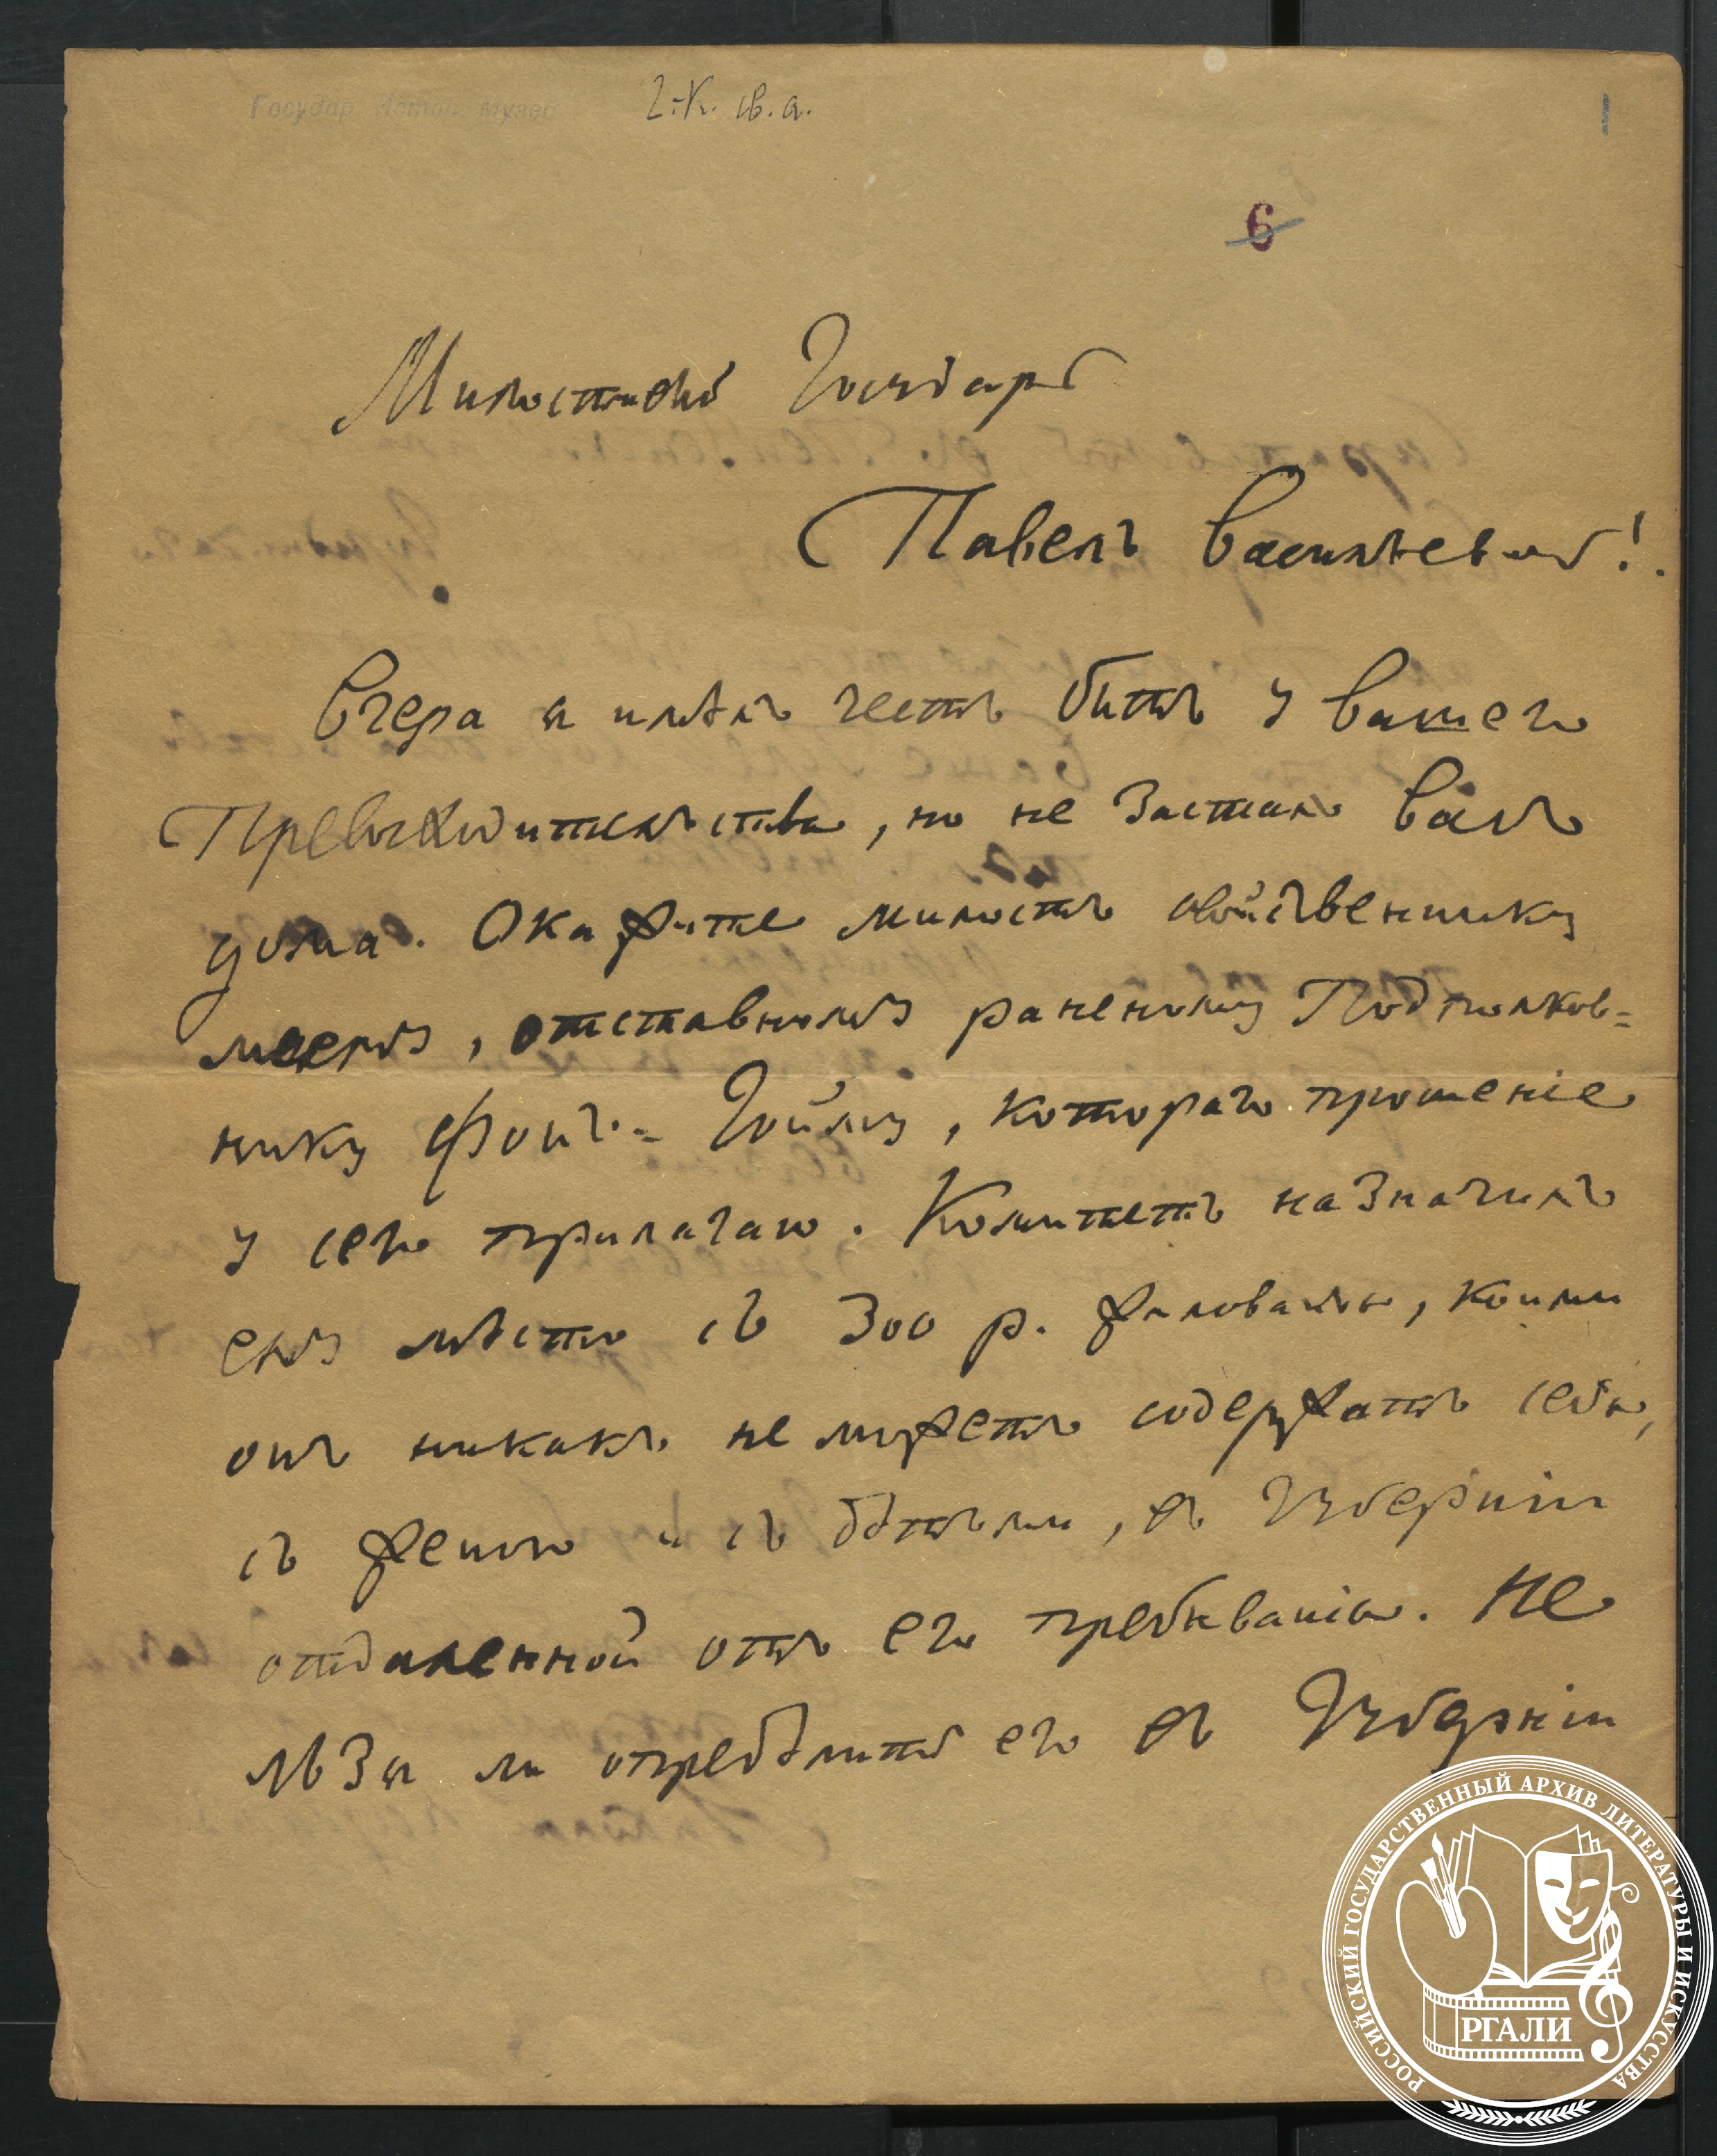 Государ. Истор. Музей
1
6
Милостивой Государь
Павелъ Васильевичь!
Вчера я имѣлъ честь быть у вашего
Превосходительства, но не засталъ васъ
дома. Окажите милость свойственнику
моему, отставному раненому Подполков=
нику Фонъ=Гойму, котораго прошеніе
у сего прилагаю. Комитетъ назначилъ
ему мѣсто съ 300 р. жалованья, коими
онъ никакъ не можетъ содержать себя,
съ женою и съ дѣтьми, въ Губерніи
отдаленной отъ его пребыванія. Не
льзя ли опредѣлить его въ Губерніи
РОССИЙСКИЙ ГОСУДАРСТВЕННЫЙ АРХИВ ЛИТЕРАТУРЫ И ИСКУССТВА
РГАЛИ